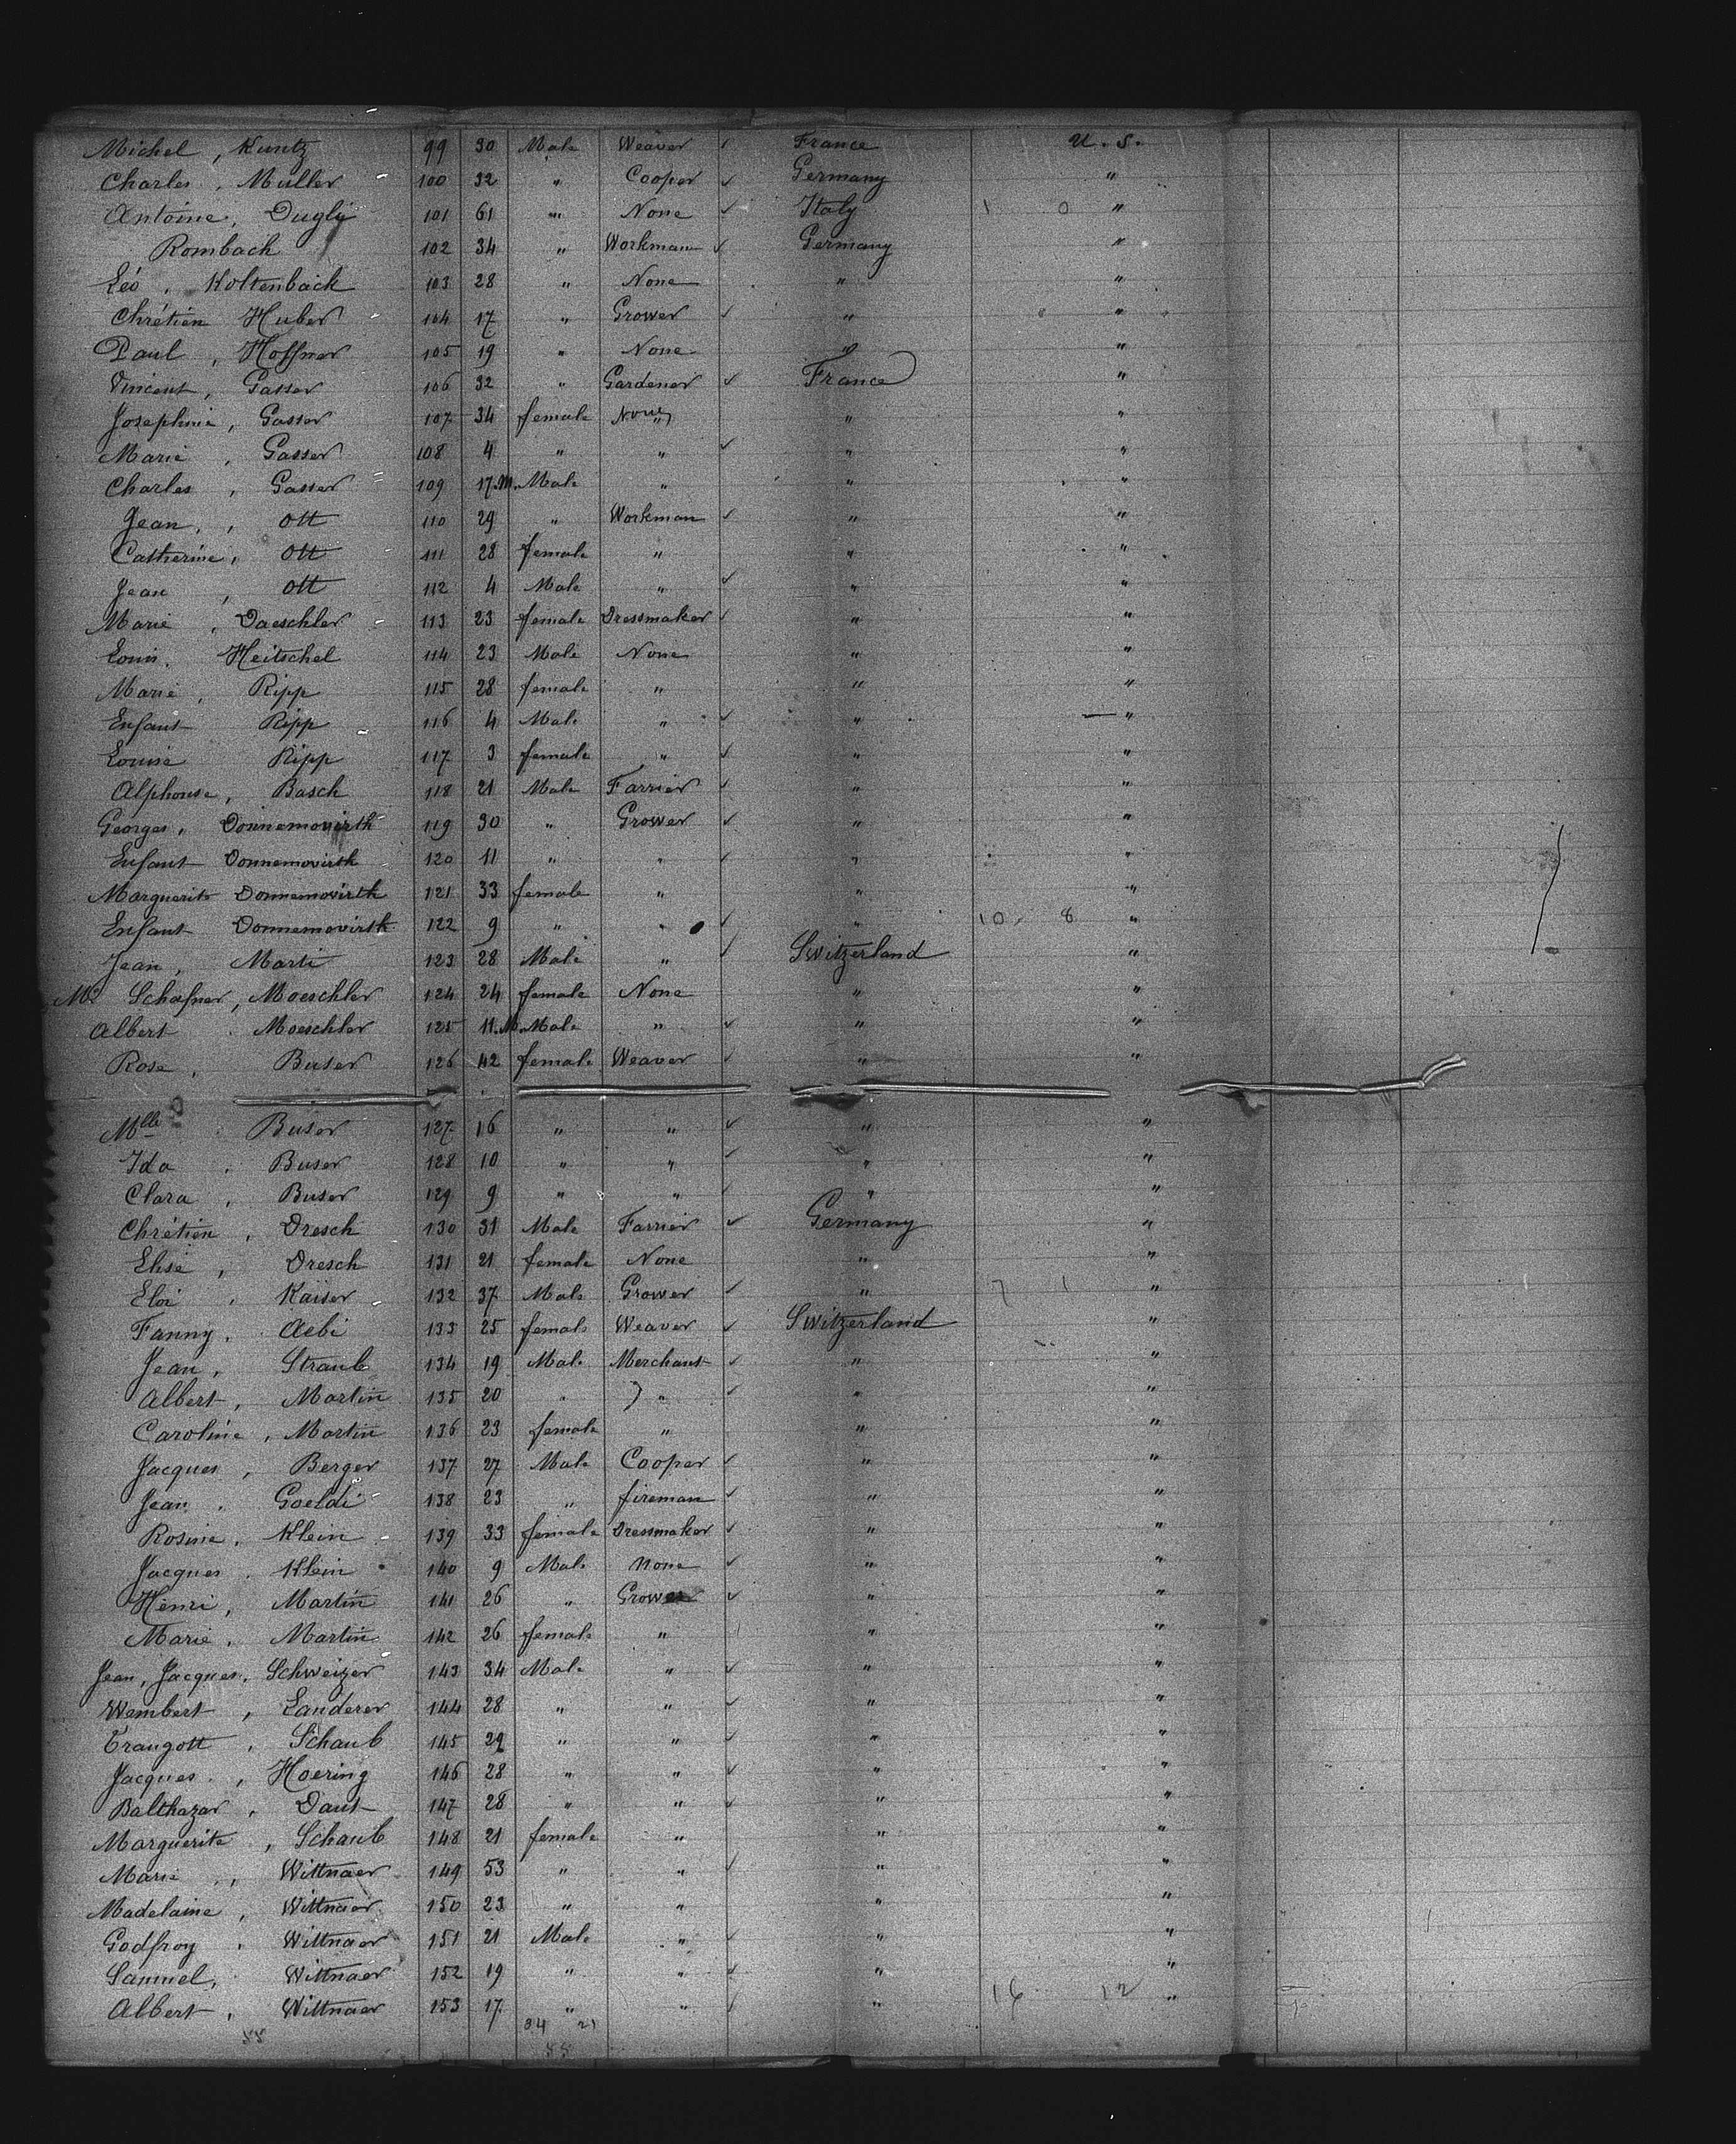 Michel, Kuntz 99 30 Male Weaver ✓ France U. S.
Charles, Muller 100 32 " Cooper ✓ Germany "
Antoine, Dugly 101 61 " None ✓ Italy 1 0 "
Rombach 102 34 " Workman ✓ Germany "
Léo, Koltenbach 103 28 " None " "
Chrétien Huber 104 17 " Grower ✓ " "
Paul, Hoffner 105 19 " None " "
Vincent, Gasser 106 32 " Gardener ✓ France "
Josephine, Gasser 107 34 female None " "
Marie, Gasser 108 4 " " ✓ " "
Charles, Gasser 109 17.M. Male " " "
Jean, Ott 110 29 " Workman ✓ " "
Catherine, Ott 111 28 female " " "
Jean, Ott 112 4 Male " ✓ " "
Marie, Daeschler 113 23 female Dressmaker ✓ " "
Louis, Heitschel 114 23 Male None " "
Marie, Ripp 115 28 female " " "
Enfant Ripp 116 4 Male " ✓ " "
Louise Ripp 117 3 female " ✓ " "
Alphonse, Basch 118 21 Male Farrier ✓ " "
Georges, Donnemovirth 119 30 " Grower ✓ " "
Enfant Donnemovirth 120 11 " " ✓ " "
Marguerite Donnemovirth 121 33 female " " "
Enfant Donnemovirth 122 9 " " ✓ " 10 8 "
Jean, Marti 123 28 Male " ✓ Switzerland "
Me Schafner, Moeschler 124 24 female None " "
Albert Moeschler 125 11.M. Male " ✓ " "
Rose, Buser 126 42 female Weaver ✓ " "
Mlle Buser 127 16 " " ✓ " "
Ida, Buser 128 10 " " ✓ " "
Clara, Buser 129 9 " " ✓ " "
Chrétien, Dresch 130 31 Male Farrier ✓ Germany "
Elise, Dresch 131 21 female None " "
Eloi, Kaiser 132 37 Male Grower ✓ " 7 1 "
Fanny, Aebi 133 25 female Weaver ✓ Switzerland "
Jean, Straub 134 19 Male Merchant ✓ " "
Albert, Martin 135 20 " " ✓ " "
Caroline, Martin 136 23 female " " "
Jacques, Berger 137 27 Male Cooper ✓ " "
Jean, Goeldi 138 23 " fireman ✓ " "
Rosine, Klein 139 33 female Dressmaker ✓ " "
Jacques, Klein 140 9 Male None ✓ " "
Henri, Martin 141 26 " Grower ✓ " "
Marie, Martin 142 26 female " " "
Jean, Jacques, Schweizer 143 34 Male " ✓ " "
Wembert, Landerer 144 28 " " ✓ " "
Traugott, Schaub 145 29 " " ✓ " "
Jacques, Hoering 146 28 " " ✓ " "
Balthazar, Daut 147 28 " " ✓ " "
Marguerite, Schaub 148 21 female " " "
Marie, Wittnaer 149 53 " " ✓ " "
Madelaine, Wittnaer 150 23 " " " "
Godfroy, Wittnaer 151 21 Male " ✓ " "
Samuel, Wittnaer 152 19 " " ✓ " "
Albert, Wittnaer 153 17 " " ✓ " 16 12 "
34 21
55 55